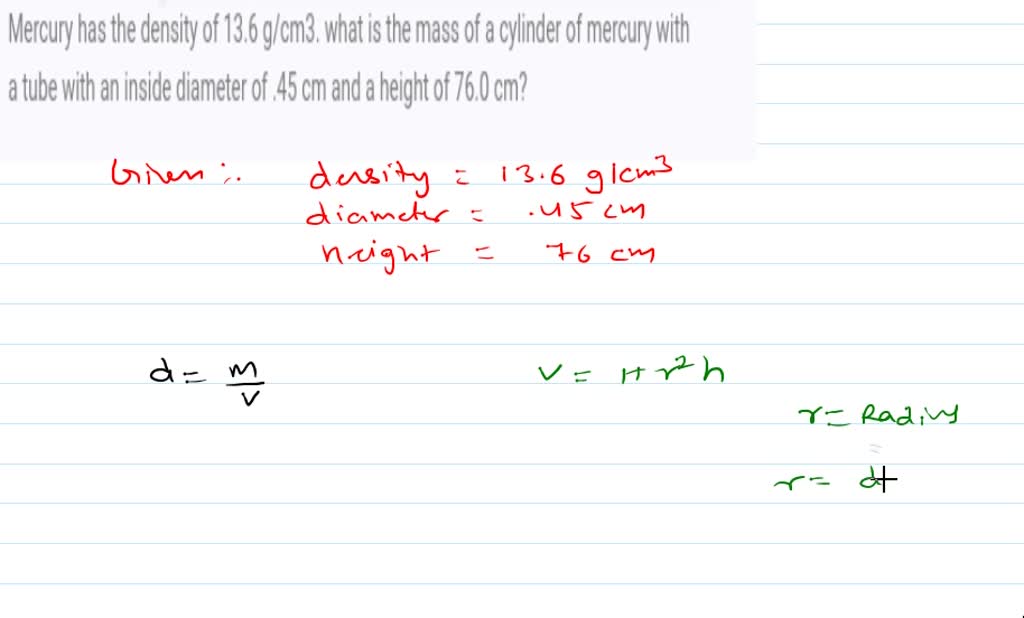 Mercury has the density of 13.6 g/cm3. what is the mass of a cylinder of mercury with
a tube with an inside diameter of .45 cm and a height of 76.0 cm?
Given :. density = 13.6 g/cm³
diameter = .45 cm
height = 76 cm
d = m/v v = πr²h
r = Radius
=
r = d